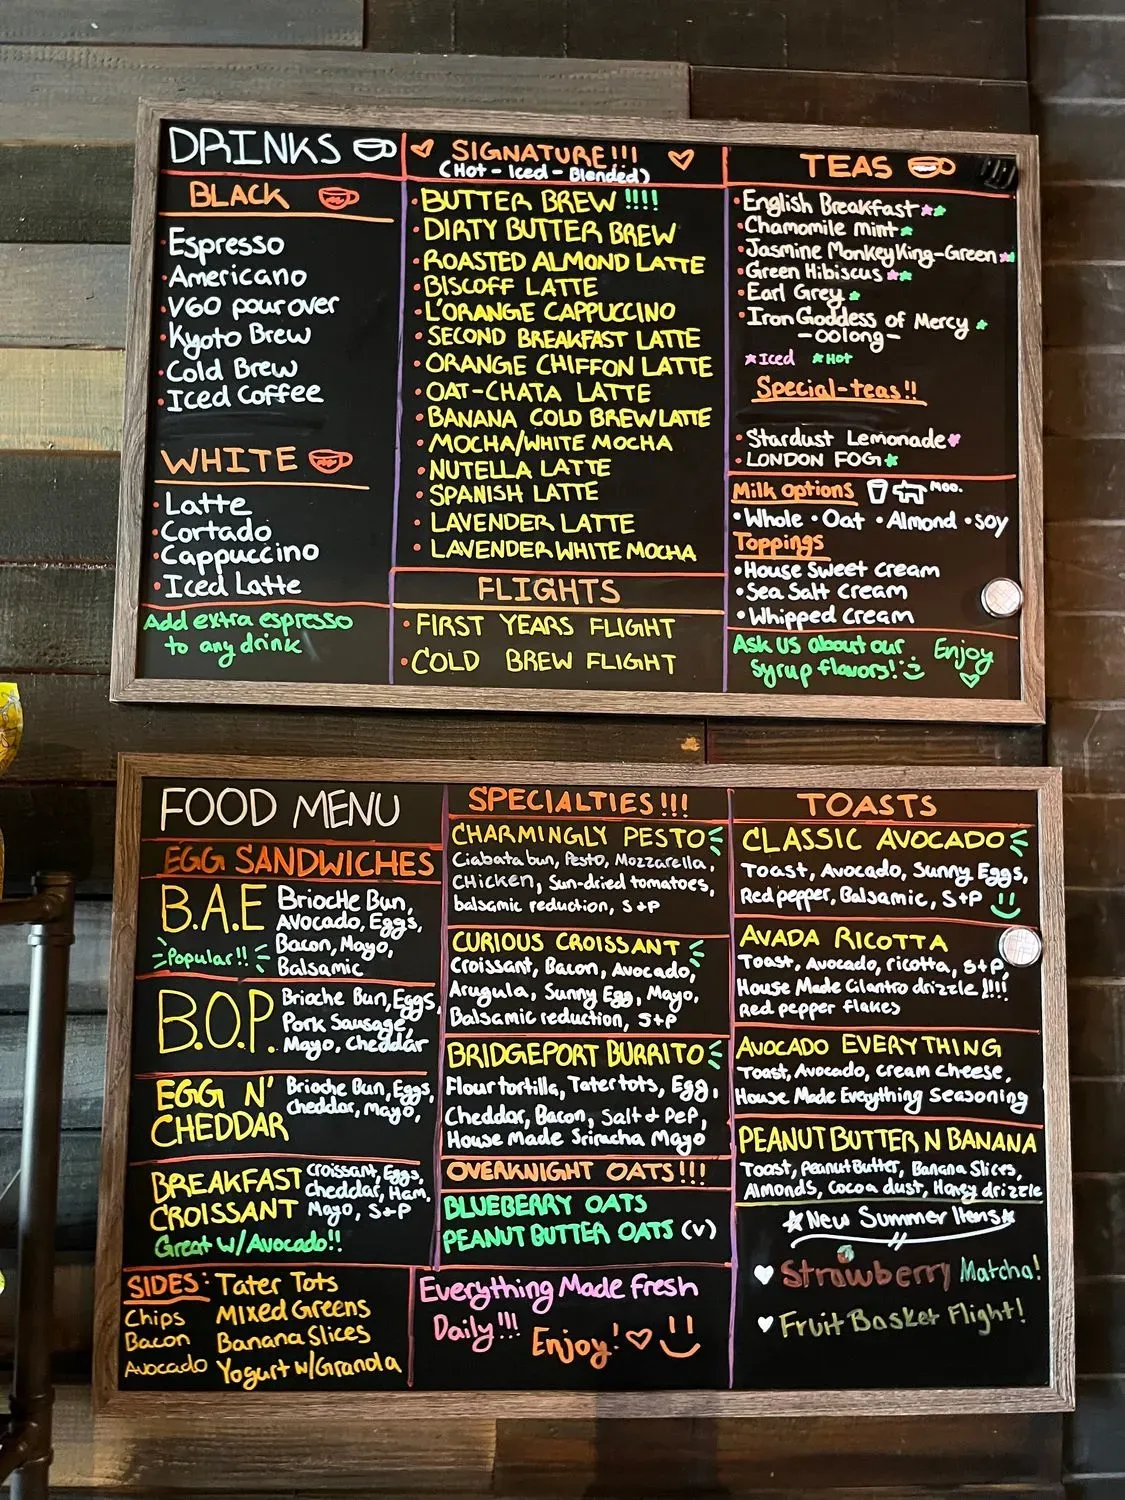 DRINKS
BLACK
Espresso
Americano
V60 pour over
Kyoto Brew
Cold Brew
Iced Coffee
WHITE
Latte
Cortado
Cappuccino
Iced Latte
Add extra espresso
to any drink
SIGNATURE!!!
(Hot - Iced - Blended)
BUTTER BREW !!!!
DIRTY BUTTER BREW
ROASTED ALMOND LATTE
BISCOFF LATTE
L'ORANGE CAPPUCCINO
SECOND BREAKFAST LATTE
ORANGE CHIFFON LATTE
OAT-CHATA LATTE
BANANA COLD BREW LATTE
MOCHA/WHITE MOCHA
NUTELLA LATTE
SPANISH LATTE
LAVENDER LATTE
LAVENDER WHITE MOCHA
FLIGHTS
FIRST YEARS FLIGHT
COLD BREW FLIGHT
TEAS
English Breakfast
Chamomile Mint
Jasmine Monkey King-Green
Green Hibiscus
Earl Grey
Iron Goddess of Mercy
-oolong-
Iced Hot
Special-teas!!
Stardust Lemonade
LONDON FOG
Milk Options MOO.
Whole • Oat • Almond • Soy
Toppings
House Sweet Cream
Sea Salt Cream
Whipped Cream
Ask us about our
syrup flavors!
Enjoy
FOOD MENU
EGG SANDWICHES
B.A.E
Popular!!
Brioche Bun,
Avocado, Eggs,
Bacon, Mayo,
Balsamic
B.O.P.
Brioche Bun, Eggs,
Pork Sausage,
Mayo, Cheddar
EGG N'
CHEDDAR
Brioche Bun, Eggs,
Cheddar, Mayo,
BREAKFAST
CROISSANT
Croissant, Eggs,
Cheddar, Ham,
Mayo, S+P
Great w/Avocado!!
SIDES:
Chips
Bacon
Avocado
Tater Tots
Mixed Greens
Banana Slices
Yogurt w/Granola
SPECIALTIES!!!
CHARMINGLY PESTO
Ciabata bun, Pesto, Mozzarella,
CHicken, Sun-dried tomatoes,
balsamic reduction, S+P
CURIOUS CROISSANT
Croissant, Bacon, Avocado,
Arugula, Sunny Egg, Mayo,
Balsamic reduction, S+P
BRIDGEPORT BURRITO
Flour tortilla, Tater tots, Egg,
Cheddar, Bacon, Salt & Pep,
House Made Sriracha Mayo
OVERKNIGHT OATS!!!
BLUEBERRY OATS
PEANUT BUTTER OATS (V)
Everything Made Fresh
Daily!!! Enjoy!
TOASTS
CLASSIC AVOCADO
Toast, Avocado, Sunny Eggs,
Red pepper, Balsamic, S+P
AVADA RICOTTA
Toast, Avocado, ricotta, S+P,
House Made Cilantro drizzle !!!!
Red pepper flakes
AVOCADO EVERYTHING
Toast, Avocado, cream cheese,
House Made Everything seasoning
PEANUT BUTTER N BANANA
Toast, Peanut Butter, Banana Slices,
Almonds, Cocoa dust, Honey drizzle
New Summer Items
Strawberry Matcha!
Fruit Basket Flight!